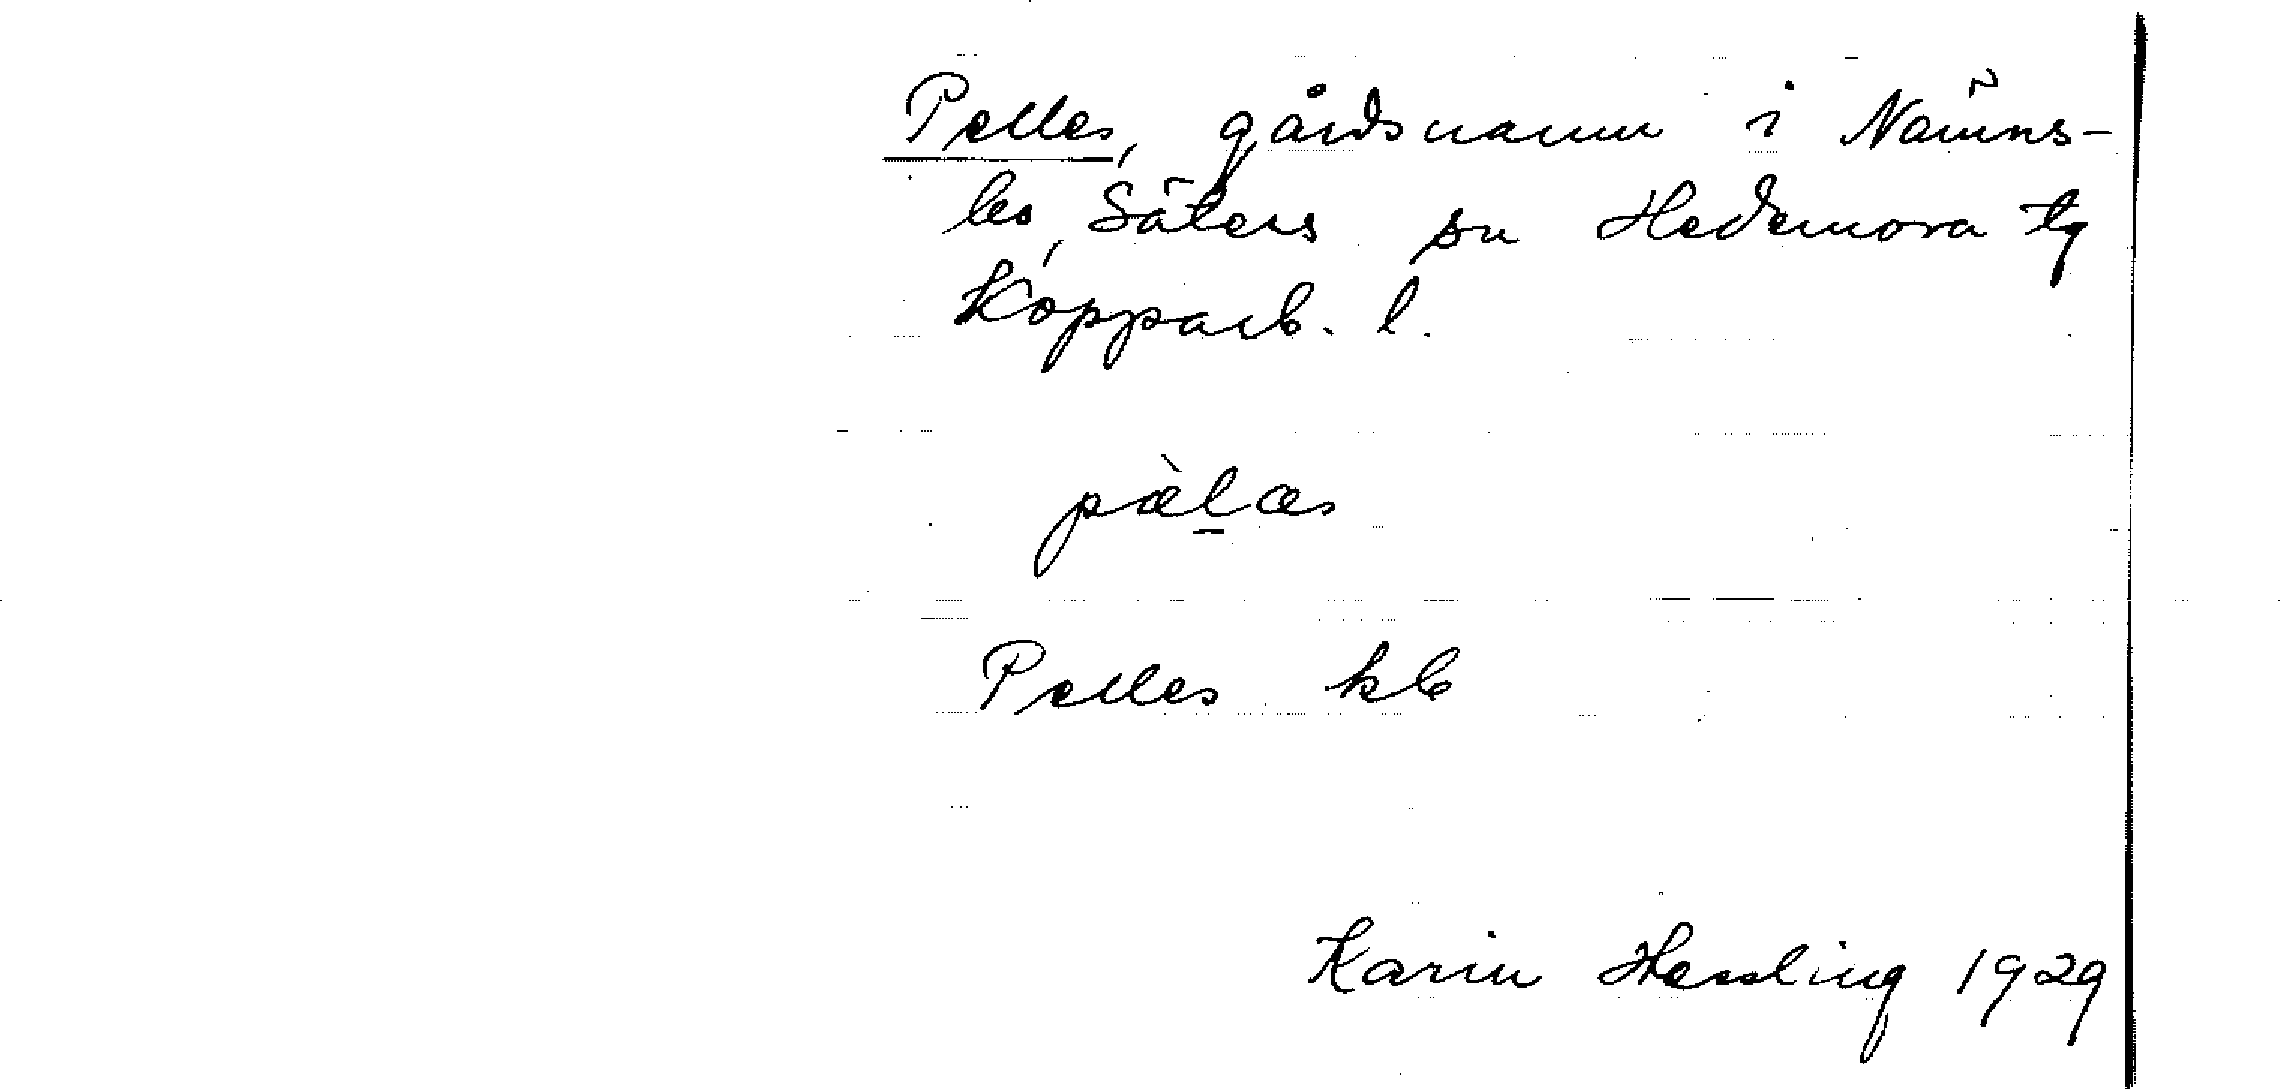 Pelles, gårdsnamn i Nämns-
bo, Säters sn Hedemora tg
Kopparb. l.
pæ̀læs
Pelles kb
Karin Hessling 1929